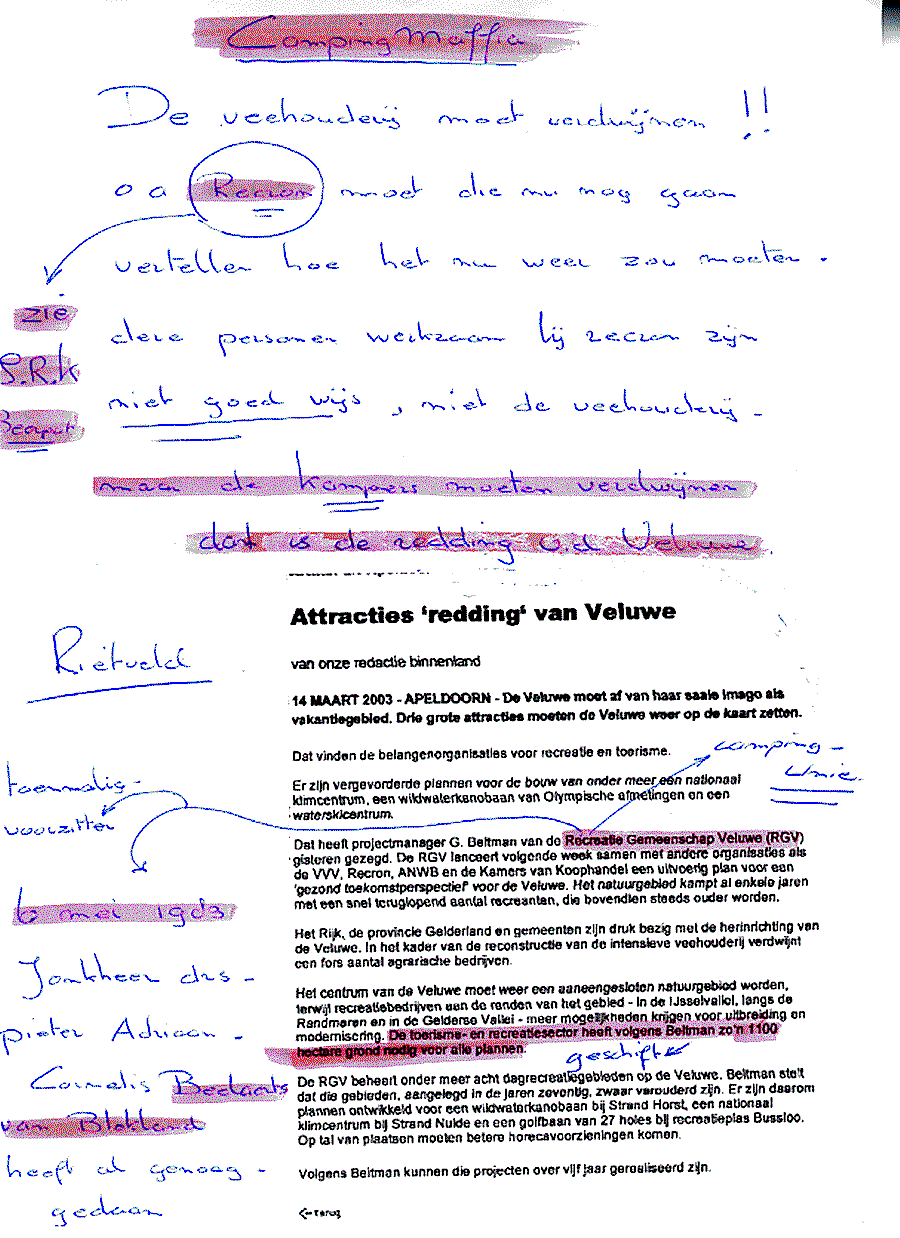 Camping Maffia
De veehouderij moet verdwijnen !!
o a Recron moet die nu nog gaan
vertellen hoe het nu weer zou moeten.
zie
deze personen werkzaam bij recron zijn
S.R.K
niet goed wijs, niet de veehouderij -
maar de kampers moeten verdwijnen
dat is de redding v.d Veluwe.
Attracties 'redding' van Veluwe
Rietveld
van onze redactie binnenland
14 MAART 2003 - APELDOORN - De Veluwe moet af van haar saaie imago als
vakantiegebied. Drie grote attracties moeten de Veluwe weer op de kaart zetten.
camping-
Unie.
Dat vinden de belangenorganisaties voor recreatie en toerisme.
toenmalig-
voorzitter
Er zijn vergevorderde plannen voor de bouw van onder meer een nationaal
klimcentrum, een wildwaterkanobaan van Olympische afmetingen en een
waterskicentrum.
Dat heeft projectmanager G. Beltman van de Recreatie Gemeenschap Veluwe (RGV)
gisteren gezegd. De RGV lanceert volgende week samen met andere organisaties als
de VVV, Recron, ANWB en de Kamers van Koophandel een uitvoerig plan voor een
'gezond toekomstperspectief' voor de Veluwe. Het natuurgebied kampt al enkele jaren
met een snel teruglopend aantal recreanten, die bovendien steeds ouder worden.
6 mei 1983
Jonkheer drs -
pieter Adriaan -
Cornelis Beelaerts
van Blokland
heeft al genoeg -
gedaan
Het Rijk, de provincie Gelderland en gemeenten zijn druk bezig met de herinrichting van
de Veluwe. In het kader van de reconstructie van de intensieve veehouderij verdwijnt
een fors aantal agrarische bedrijven.
Het centrum van de Veluwe moet weer een aaneengesloten natuurgebied worden,
terwijl recreatiebedrijven aan de randen van het gebied - in de IJsselvallei, langs de
Randmeren en in de Gelderse Vallei - meer mogelijkheden krijgen voor uitbreiding en
modernisering. De toerisme- en recreatiesector heeft volgens Beltman zo'n 1100
hectare grond nodig voor alle plannen.
geschift
De RGV beheert onder meer acht dagrecreatiegebieden op de Veluwe. Beltman stelt
dat die gebieden, aangelegd in de jaren zeventig, zwaar verouderd zijn. Er zijn daarom
plannen ontwikkeld voor een wildwaterkanobaan bij Strand Horst, een nationaal
klimcentrum bij Strand Nulde en een golfbaan van 27 holes bij recreatieplas Bussloo.
Op tal van plaatsen moeten betere horecavoorzieningen komen.
Volgens Beltman kunnen die projecten over vijf jaar gerealiseerd zijn.
<-- terug